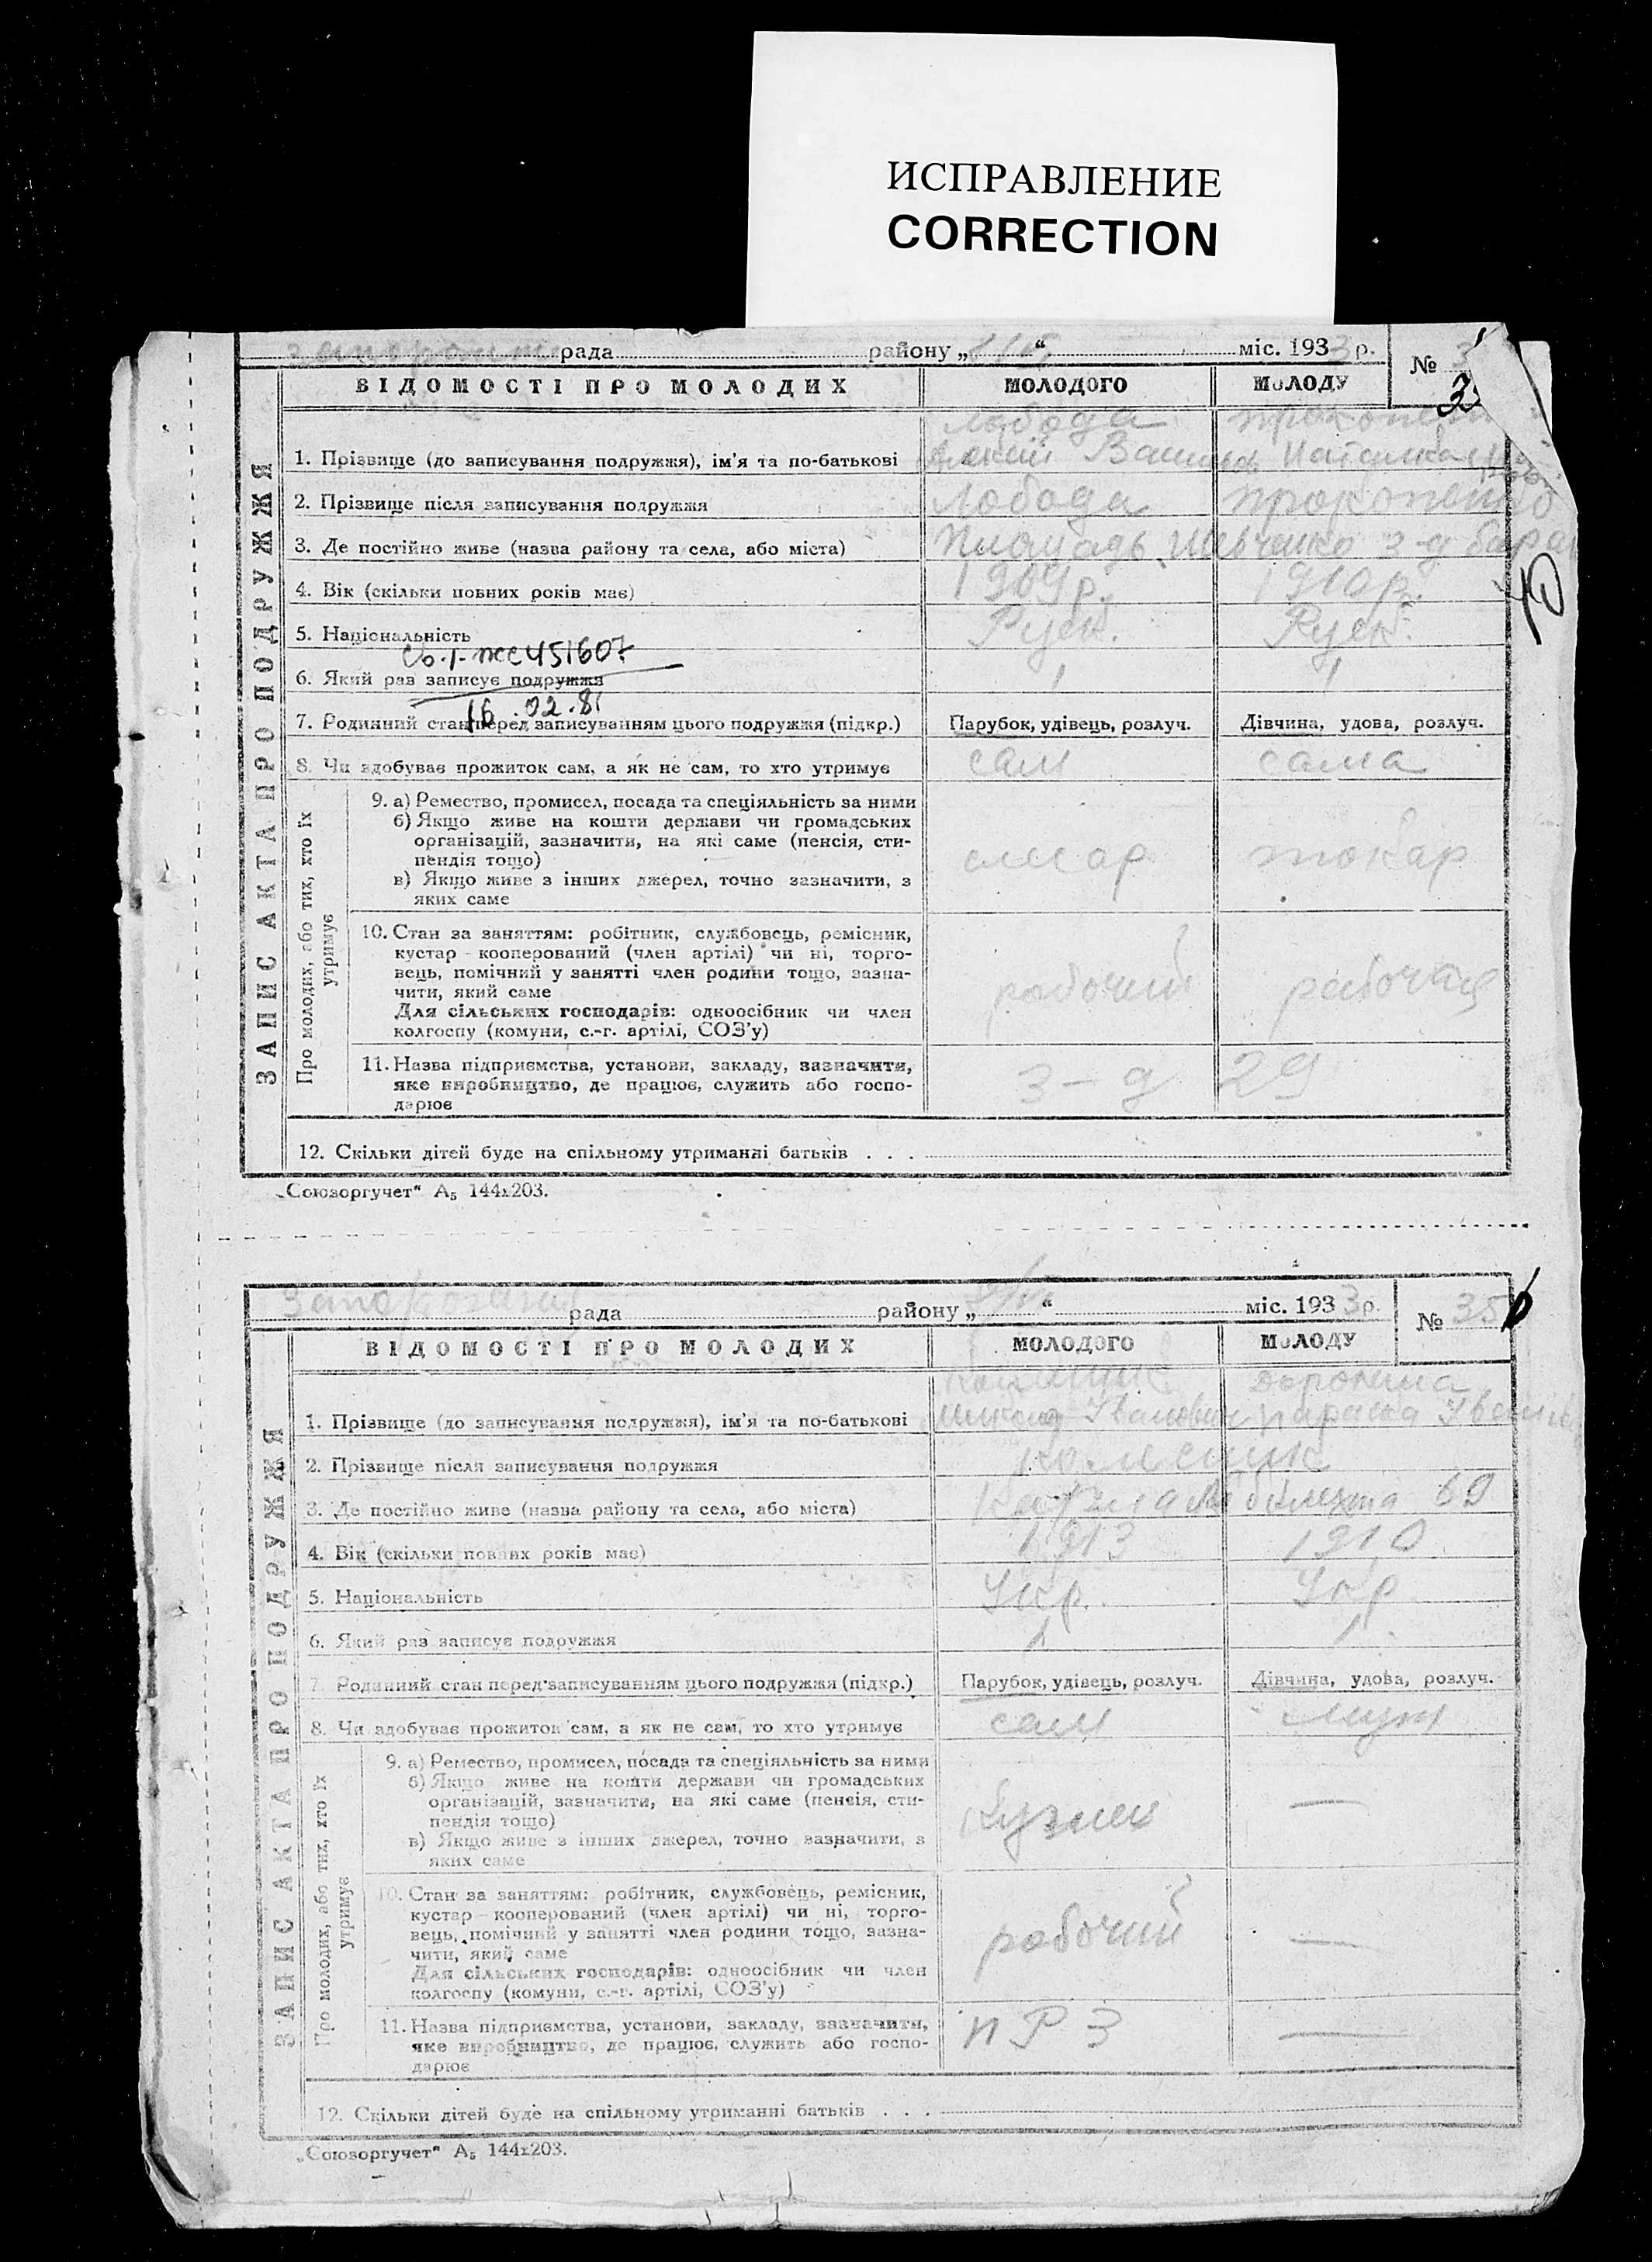 ИСПРАВЛЕНИЕ
CORRECTION
рада району „ “ міс. 1933 р. №
ВІДОМОСТІ ПРО МОЛОДИХ МОЛОДОГО МОЛОДУ
ЗАПИС АКТА ПРО ПОДРУЖЖЯ
Лобода
1. Прізвище (до записування подружжя), ім'я та по-батькові
2. Прізвище після записування подружжя Лобода Прокопенко
3. Де постійно живе (назва району та села, або міста) Площадь Шевченко з-д
4. Вік (скільки повних років має) 1909 р. 1910 р.
5. Національність Руск. Руск.
451607
6. Який раз записує подружжя 1 1
16.02.81
7. Родинний стан перед записуванням цього подружжя (підкр.) Парубок, удівець, розлуч. Дівчина, удова, розлуч.
8. Чи здобуває прожиток сам, а як не сам, то хто утримує сам сама
Про молодих, або тих, хто їх утримує
9. а) Ремество, промисел, посада та спеціяльність за ними
б) Якщо живе на кошти держави чи громадських
організацій, зазначити, на які саме (пенсія, сти-
пендія тощо) слесар токар
в) Якщо живе з інших джерел, точно зазначити, з
яких саме
10. Стан за заняттям: робітник, службовець, ремісник,
кустар кооперований (член артілі) чи ні, торго-
вець, помічний у занятті член родини тощо, зазна-
чити, який саме рабочий рабочая
Для сільських господарів: одноосібник чи член
колгоспу (комуни, с.-г. артілі, СОЗ'у)
11. Назва підприємства, установи, закладу, зазначити,
яке виробництво, де працює, служить або госпо- з-д 29
дарює
12. Скільки дітей буде на спільному утриманні батьків . . .
„Союзоргучет“ А₅ 144х203.
рада району „ “ міс. 1933 р. № 35
ВІДОМОСТІ ПРО МОЛОДИХ МОЛОДОГО МОЛОДУ
ЗАПИС АКТА ПРО ПОДРУЖЖЯ
Доронина
1. Прізвище (до записування подружжя), ім'я та по-батькові Іванович Параска
2. Прізвище після записування подружжя Колесник
3. Де постійно живе (назва району та села, або міста) 69
4. Вік (скільки повних років має) 1913 1910
5. Національність Укр. Укр.
6. Який раз записує подружжя 1 1
7. Родинний стан перед записуванням цього подружжя (підкр.) Парубок, удівець, розлуч. Дівчина, удова, розлуч.
8. Чи здобуває прожиток сам, а як не сам, то хто утримує сам муж
Про молодих, або тих, хто їх утримує
9. а) Ремество, промисел, посада та спеціяльність за ними
б) Якщо живе на кошти держави чи громадських
організацій, зазначити, на які саме (пенсія, сти-
пендія тощо) Кузнец —
в) Якщо живе з інших джерел, точно зазначити, з
яких саме
10. Стан за заняттям: робітник, службовець, ремісник,
кустар кооперований (член артілі) чи ні, торго-
вець, помічний у занятті член родини тощо, зазна-
чити, який саме рабочий —
Для сільських господарів: одноосібник чи член
колгоспу (комуни, с.-г. артілі, СОЗ'у)
11. Назва підприємства, установи, закладу, зазначити,
яке виробництво, де працює, служить або госпо- ПРЗ —
дарює
12. Скільки дітей буде на спільному утриманні батьків . . .
„Союзоргучет“ А₅ 144х203.